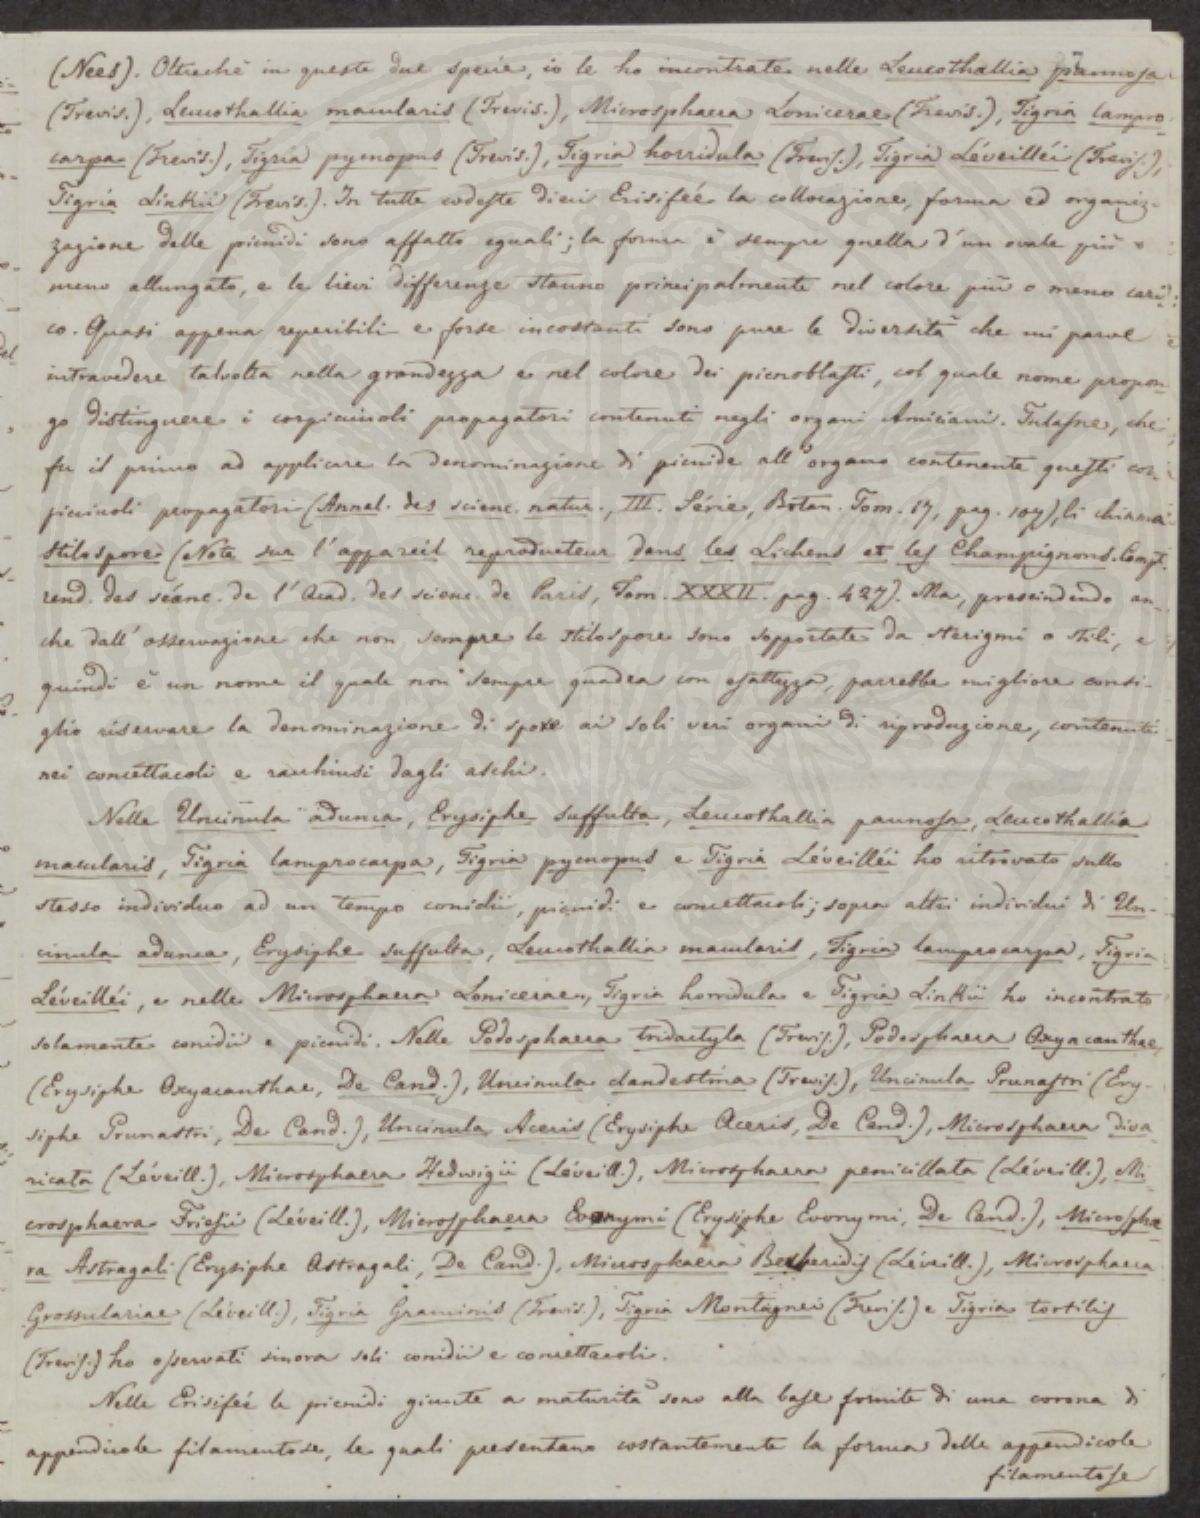 (Nees). Oltrechè in queste due specie, io le ho incontrate nelle Leucothallia pannosa
(Trevis.), Leucothallia macularis (Trevis.), Microsphaera Lonicerae (Trevis.), Tigria lampro-
carpa (Trevis.), Tigria pycnopus (Trevis.), Tigria horridula (Trevis.), Tigria Léveilléi (Trevis.),
Tigria Linkii (Trevis.). In tutte codeste dieci Erisifée la collocazione, forma ed organiz-
zazione delle picnidi sono affatto eguali; la forma è sempre quella d'un ovale più o
meno allungato, e le lievi differenze stanno principalmente nel colore più o meno cari-
co. Quasi appena reperibili e forse incostanti sono pure le diversità che mi parve
intravedere talvolta nella grandezza e nel colore dei picnoblasti, col quale nome propon-
go distinguere i corpicciuoli propagatori contenuti negli organi Amiciani. Tulasne, che
fu il primo ad applicare la denominazione di picnide all'organo contenente questi cor-
picciuoli propagatori (Annal. des scienc. natur., III. Série, Botan. Tom. 17, pag. 107), li chiama
stilospore (Note sur l'appareil reproducteur dans les Lichens et les Champignons. Compt.
rend. des séanc. de l'Acad. des scienc. de Paris, Tom. XXXII. pag. 427). Ma, prescindendo an-
che dall'osservazione che non sempre le stilospore sono sopportate da sterigmi o stili, e
quindi è un nome il quale non sempre quadra con esattezza, parrebbe migliore consi-
glio riservare la denominazione di spore ai soli veri organi di riproduzione, contenuti
nei concettacoli e racchiusi dagli aschi.
Nelle Uncinula adunca, Erysiphe suffulta, Leucothallia pannosa, Leucothallia
macularis, Tigria lamprocarpa, Tigria pycnopus e Tigria Léveilléi ho ritrovato sullo
stesso individuo ad un tempo conidii, picnidi e concettacoli; sopra altri individui di Un-
cinula adunca, Erysiphe suffulta, Leucothallia macularis, Tigria lamprocarpa, Tigria
Léveilléi, e nelle Microsphaera Lonicerae, Tigria horridula e Tigria Linkii ho incontrato
solamente conidii e picnidi. Nelle Podosphaera tridactyla (Trevis.), Podosphaera Oxyacanthae
(Erysiphe Oxyacanthae, De Cand.), Uncinula clandestina (Trevis.), Uncinula Prunastri (Ery-
siphe Prunastri, De Cand.), Uncinula Aceris (Erysiphe Aceris, De Cand.), Microsphaera diva-
ricata (Léveill.), Microsphaera Hedwigii (Léveill.), Microsphaera penicillata (Léveill.), Mi-
crosphaera Friesii (Léveill.), Microsphaera Evonymi (Erysiphe Evonymi, De Cand.), Microsphae-
ra Astragali (Erysiphe Astragali, De Cand.), Microsphaera Berberidis (Léveill.), Microsphaera
Grossulariae (Léveill.), Tigria Graminis (Trevis.), Tigria Montagnei (Trevis.) e Tigria tortilis
(Trevis.) ho osservati sinora soli conidii e concettacoli.
Nelle Erisifée le picnidi giunte a maturità sono alla base fornite di una corona di
appendicole filamentose, le quali presentano costantemente la forma delle appendicole
filamentose